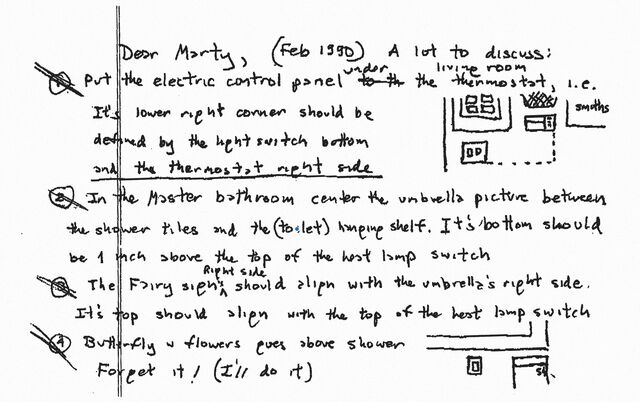 Dear Marty, (Feb 1990) A lot to discuss:
1 Put the electric control panel under the living room thermostat, i.e.
It's lower right corner should be
defined by the light switch bottom
and the thermostat right side
smaths
2 In the Master bathroom center the umbrella picture between
the shower tiles and the (toilet) hanging shelf. It's bottom should
be 1 inch above the top of the heat lamp switch
3 The Fairy sign's Right side should align with the umbrella's right side.
It's top should align with the top of the heat lamp switch
4 Butterfly w flowers goes above shower
Forget it! (I'll do it)